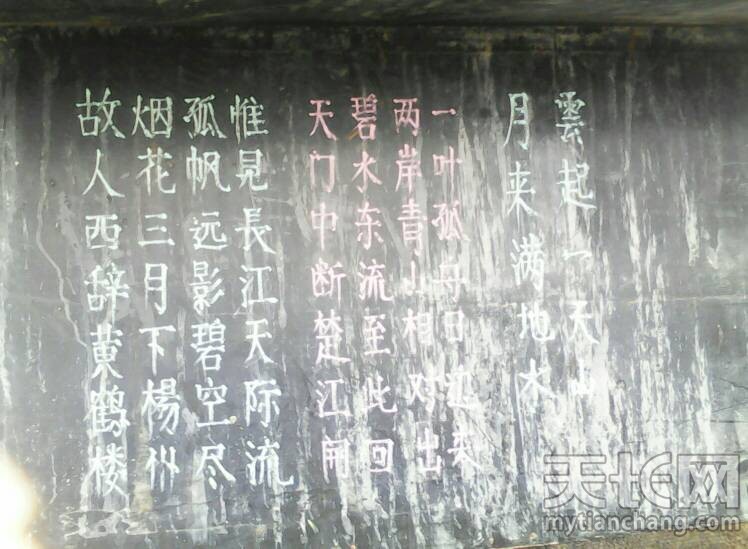 故人西辞黄鹤楼
烟花三月下楊州
孤帆远影碧空尽
惟見長江天际流
天门中断楚江開
碧水东流至此回
两岸青山相对出
一叶孤舟日边来
月来满地水
雲起一天山
天长网
mytianchang.com